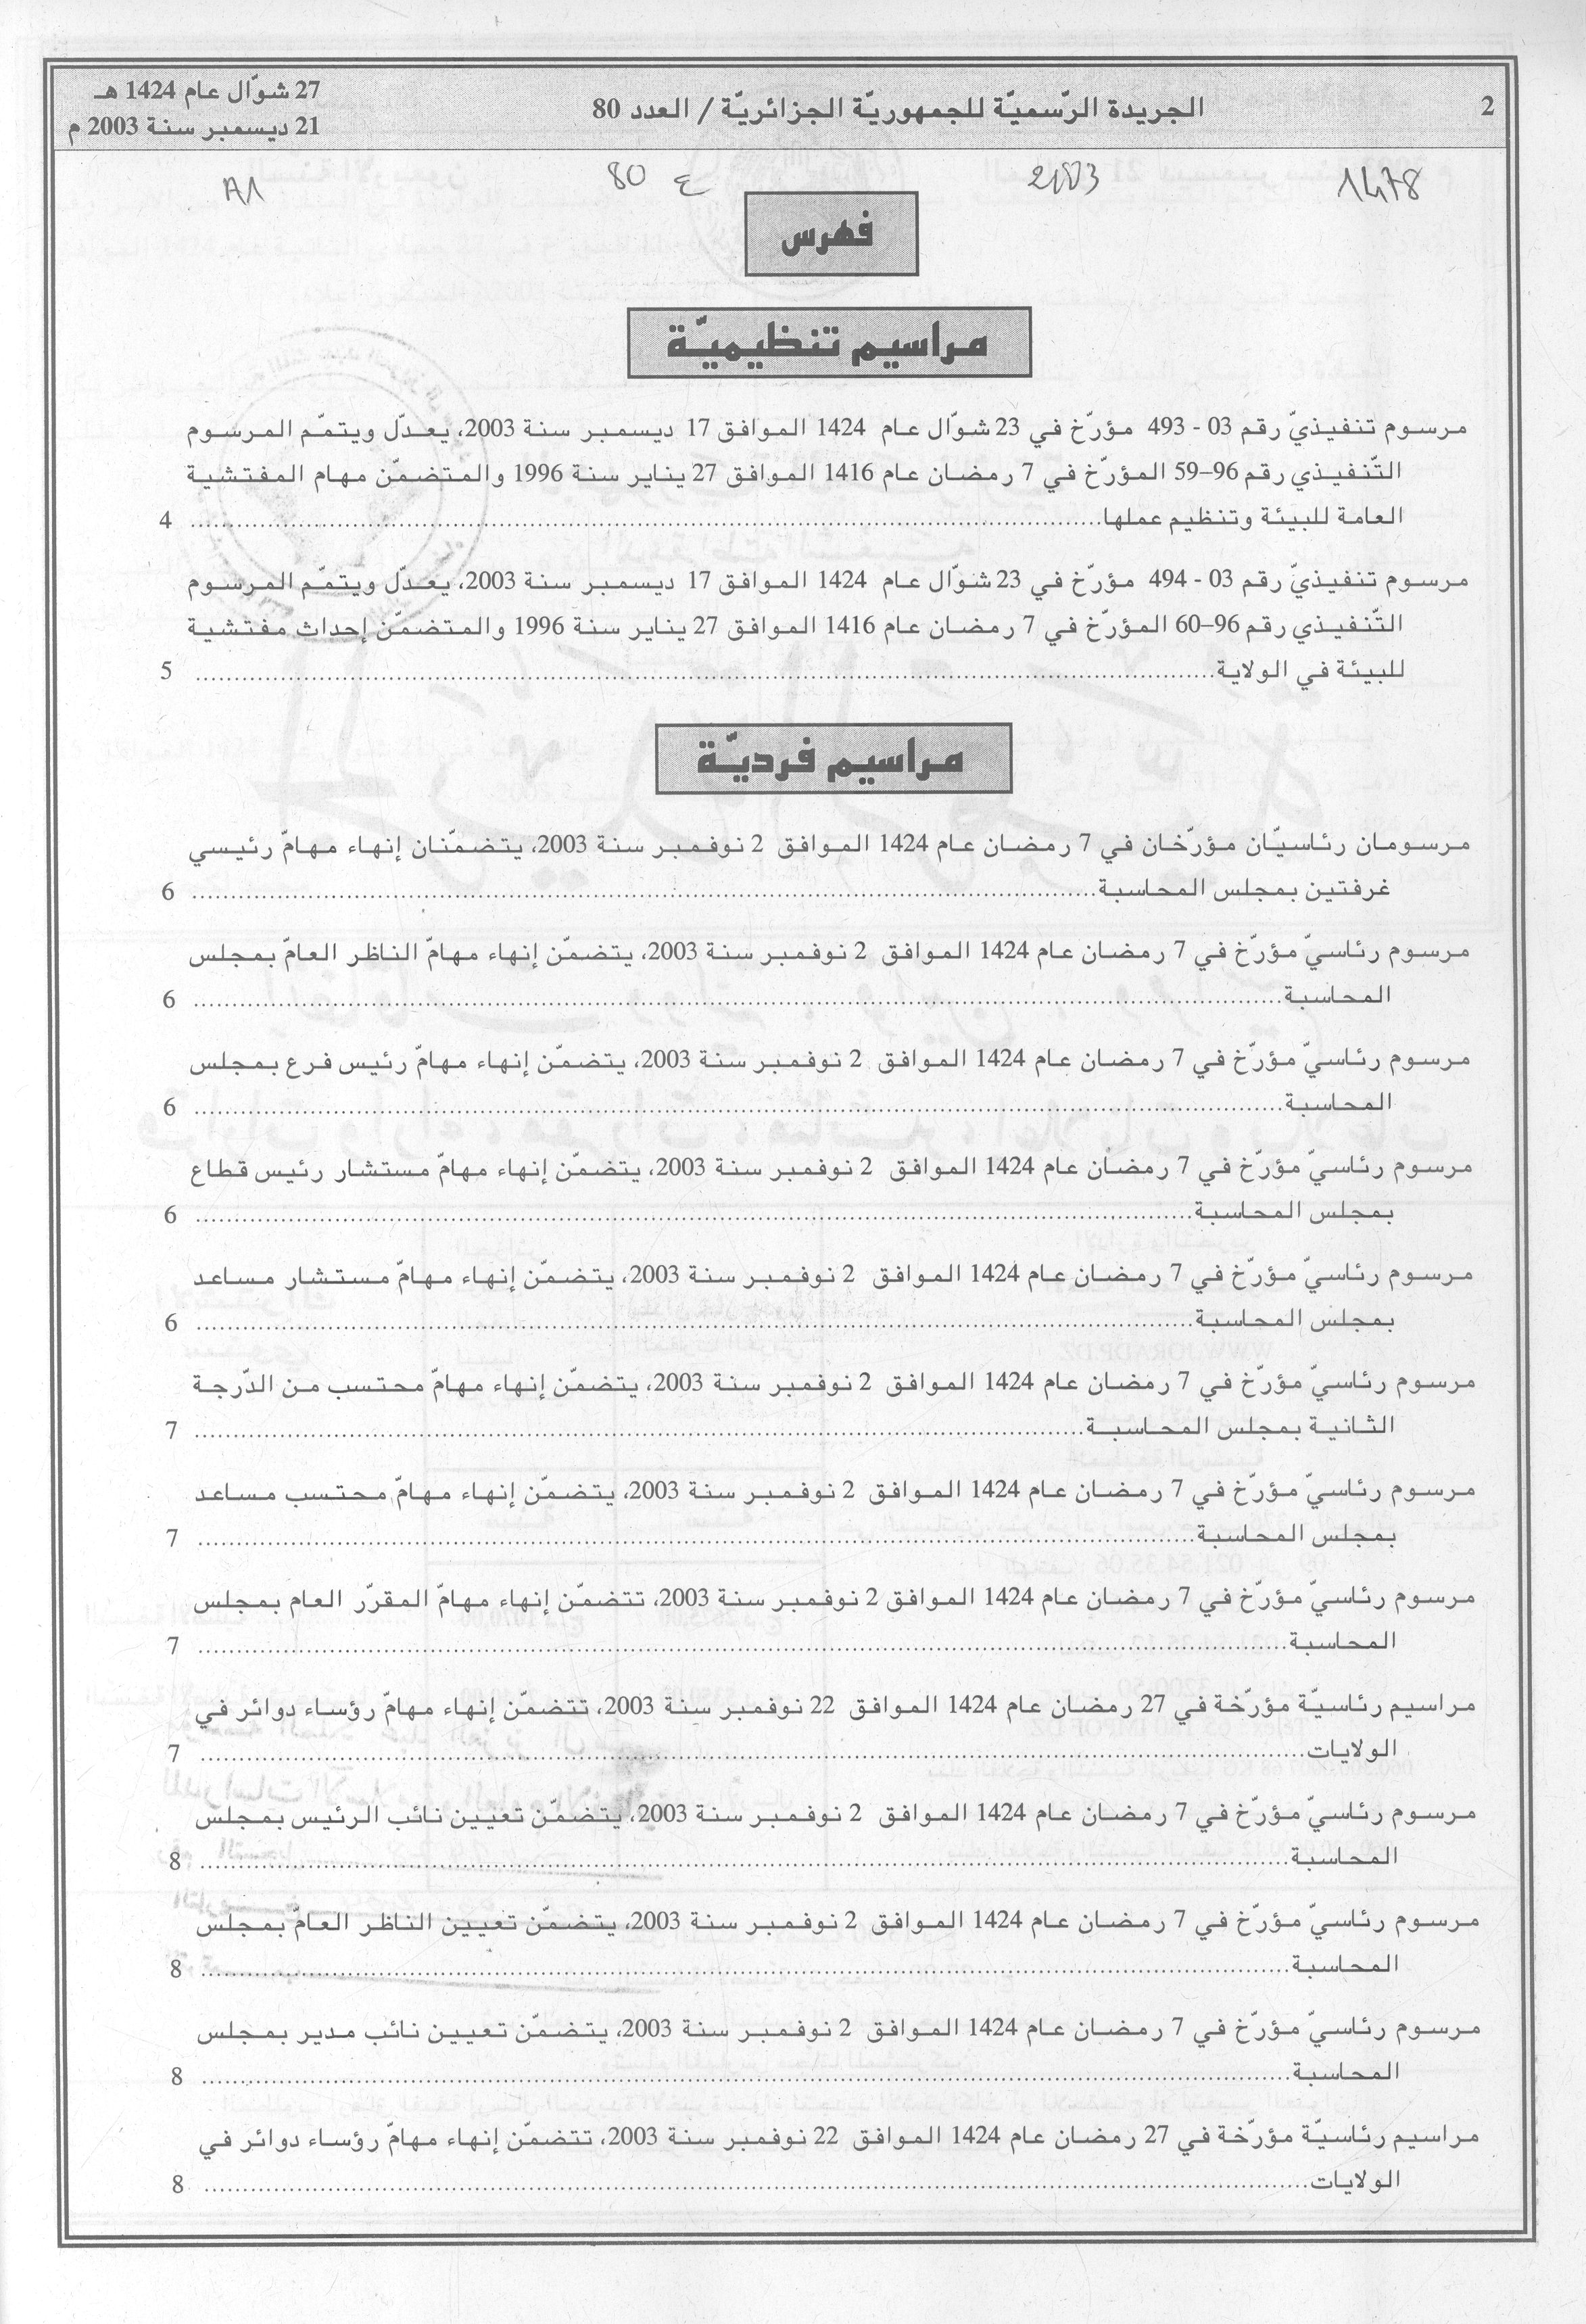 2
الجريدة الرّسميّة للجمهوريّة الجزائريّة / العدد 80
27 شوّال عام 1424 هـ
21 ديسمبر سنة 2003 م
1478 2003 ع 80 A1
فهرس
مراسيم تنظيميّة
مرسوم تنفيذيّ رقم 03 - 493 مؤرّخ في 23 شوّال عام 1424 الموافق 17 ديسمبر سنة 2003، يعدّل ويتمّم المرسوم
التّنفيذي رقم 96–59 المؤرّخ في 7 رمضان عام 1416 الموافق 27 يناير سنة 1996 والمتضمّن مهام المفتشية
العامة للبيئة وتنظيم عملها.......... 4
مرسوم تنفيذيّ رقم 03 - 494 مؤرّخ في 23 شوّال عام 1424 الموافق 17 ديسمبر سنة 2003، يعدّل ويتمّم المرسوم
التّنفيذي رقم 96–60 المؤرّخ في 7 رمضان عام 1416 الموافق 27 يناير سنة 1996 والمتضمّن إحداث مفتشية
للبيئة في الولاية.......... 5
مراسيم فرديّة
مرسومان رئاسيّان مؤرّخان في 7 رمضان عام 1424 الموافق 2 نوفمبر سنة 2003، يتضمّنان إنهاء مهامّ رئيسي
غرفتين بمجلس المحاسبة.......... 6
مرسوم رئاسيّ مؤرّخ في 7 رمضان عام 1424 الموافق 2 نوفمبر سنة 2003، يتضمّن إنهاء مهامّ الناظر العامّ بمجلس
المحاسبة.......... 6
مرسوم رئاسيّ مؤرّخ في 7 رمضان عام 1424 الموافق 2 نوفمبر سنة 2003، يتضمّن إنهاء مهامّ رئيس فرع بمجلس
المحاسبة.......... 6
مرسوم رئاسيّ مؤرّخ في 7 رمضان عام 1424 الموافق 2 نوفمبر سنة 2003، يتضمّن إنهاء مهامّ مستشار رئيس قطاع
بمجلس المحاسبة.......... 6
مرسوم رئاسيّ مؤرّخ في 7 رمضان عام 1424 الموافق 2 نوفمبر سنة 2003، يتضمّن إنهاء مهامّ مستشار مساعد
بمجلس المحاسبة.......... 6
مرسوم رئاسيّ مؤرّخ في 7 رمضان عام 1424 الموافق 2 نوفمبر سنة 2003، يتضمّن إنهاء مهامّ محتسب من الدّرجة
الثانية بمجلس المحاسبة.......... 7
مرسوم رئاسيّ مؤرّخ في 7 رمضان عام 1424 الموافق 2 نوفمبر سنة 2003، يتضمّن إنهاء مهامّ محتسب مساعد
بمجلس المحاسبة.......... 7
مرسوم رئاسيّ مؤرّخ في 7 رمضان عام 1424 الموافق 2 نوفمبر سنة 2003، تتضمّن إنهاء مهامّ المقرّر العام بمجلس
المحاسبة.......... 7
مراسيم رئاسيّة مؤرّخة في 27 رمضان عام 1424 الموافق 22 نوفمبر سنة 2003، تتضمّن إنهاء مهامّ رؤساء دوائر في
الولايات.......... 7
مرسوم رئاسيّ مؤرّخ في 7 رمضان عام 1424 الموافق 2 نوفمبر سنة 2003، يتضمّن تعيين نائب الرئيس بمجلس
المحاسبة.......... 8
مرسوم رئاسيّ مؤرّخ في 7 رمضان عام 1424 الموافق 2 نوفمبر سنة 2003، يتضمّن تعيين الناظر العامّ بمجلس
المحاسبة.......... 8
مرسوم رئاسيّ مؤرّخ في 7 رمضان عام 1424 الموافق 2 نوفمبر سنة 2003، يتضمّن تعيين نائب مدير بمجلس
المحاسبة.......... 8
مراسيم رئاسيّة مؤرّخة في 27 رمضان عام 1424 الموافق 22 نوفمبر سنة 2003، تتضمّن إنهاء مهامّ رؤساء دوائر في
الولايات.......... 8